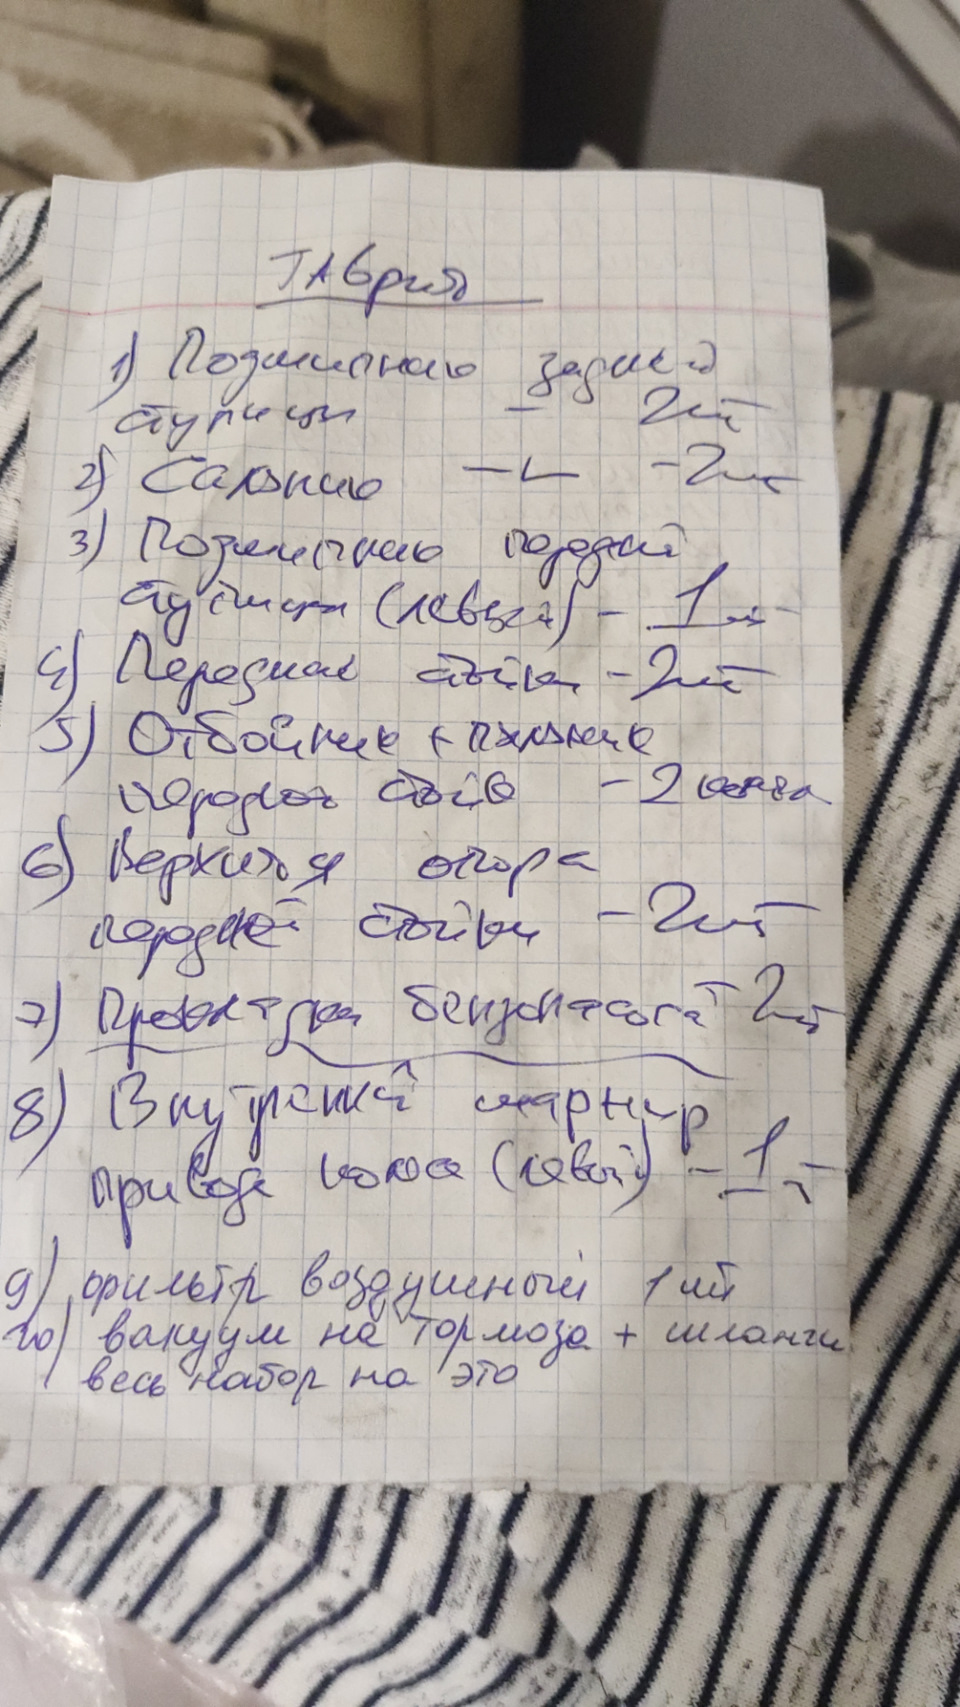 Таврия
1) Подшипник задней
ступицы - 2шт
2) Сальник -〃- -2шт
3) Подшипник передней
ступицы (левый) - 1шт
4) Передняя стойка - 2шт
5) Отбойник + пыльник
передней стойки - 2 компл
6) Верхняя опора
передней стойки - 2шт
7) Прокладка бензонасоса 2шт
8) Внутренний шарнир
привода колеса (левый) - 1шт
9) фильтр воздушный 1шт
10) вакуум на тормоза + шланги
весь набор на это